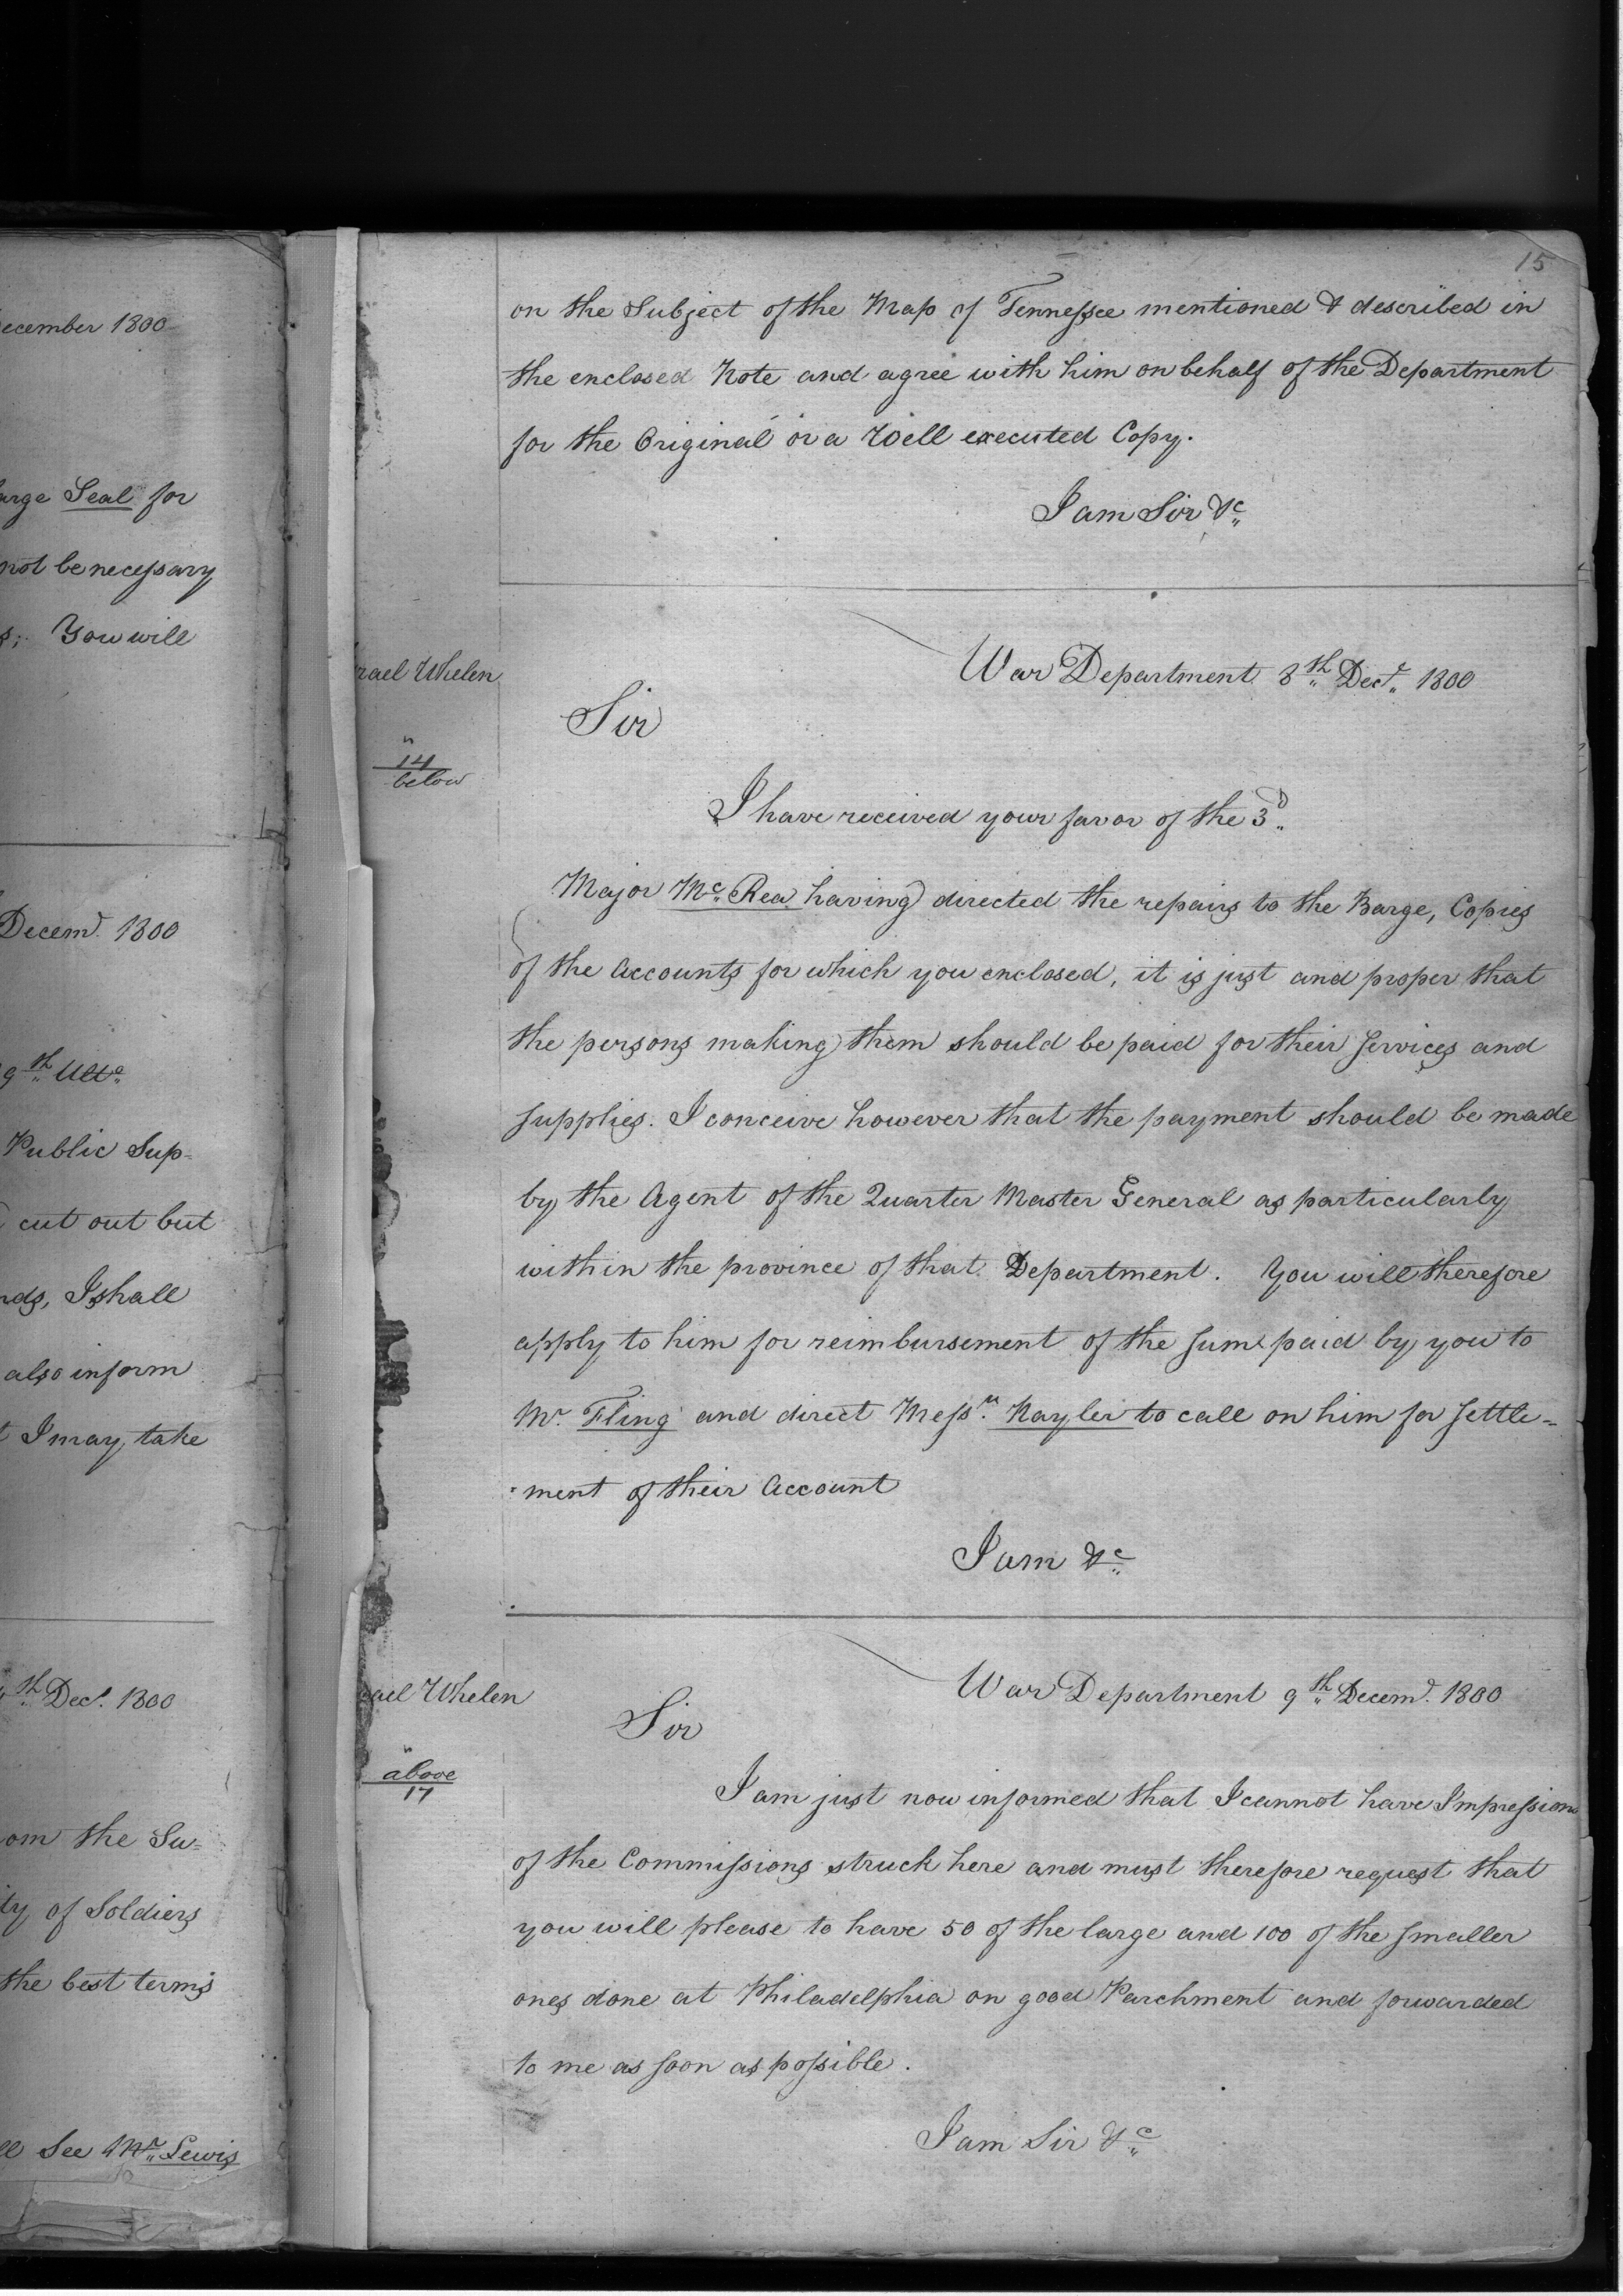 ecember 1800
arge Seal for
not be necessary
s; You will
Decemr. 1800
9th Ulto
Public Sup-
cut out but
nds, I shall
also inform
t I may take
th Decr. 1800
om the Su-
ity of Soldiers
the best terms
ll See Mr. Lewis
15
on the Subject of the Map of Tennessee mentioned & described in
the enclosed Note and agree with him on behalf of the Department
for the Original or a Well executed Copy.
I am Sir &c
rael Whelen
War Department 8th Decr. 1800
Sir
14
below
I have received your favor of the 3d.
Major Mc. Rea having directed the repairs to the Barge, Copies
of the Accounts for which you enclosed, it is just and proper that
the persons making them should be paid for their Services and
supplies. I conceive however that the payment should be made
by the Agent of the Quarter Master General as particularly
within the province of that Department. You will therefore
apply to him for reimbursement of the sum paid by you to
Mr. Fling and direct Messrs. Nayler to call on him for settle-
-ment of their Account
I am &c
ael Whelen
War Department 9th Decemr. 1800
Sir
above
17
I am just now informed that I cannot have Impressions
of the Commissions struck here and must therefore request that
you will please to have 50 of the large and 100 of the smaller
ones done at Philadelphia on good Parchment and forwarded
to me as soon as possible.
I am Sir &c